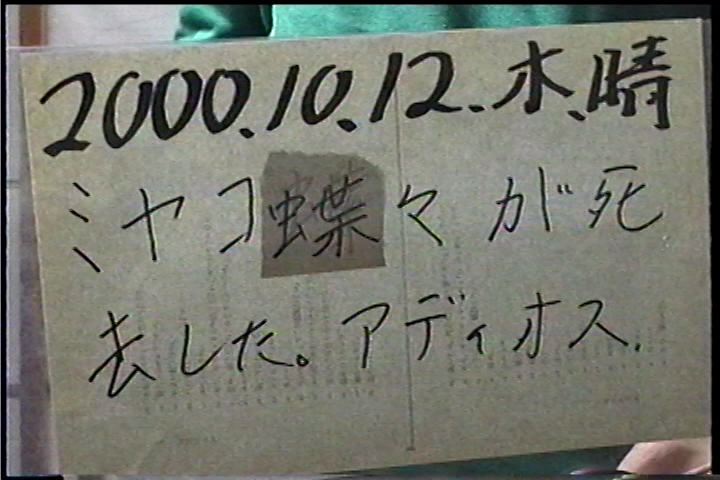 2000.10.12.木.晴
ミヤコ蝶々が死
去した。アディオス.